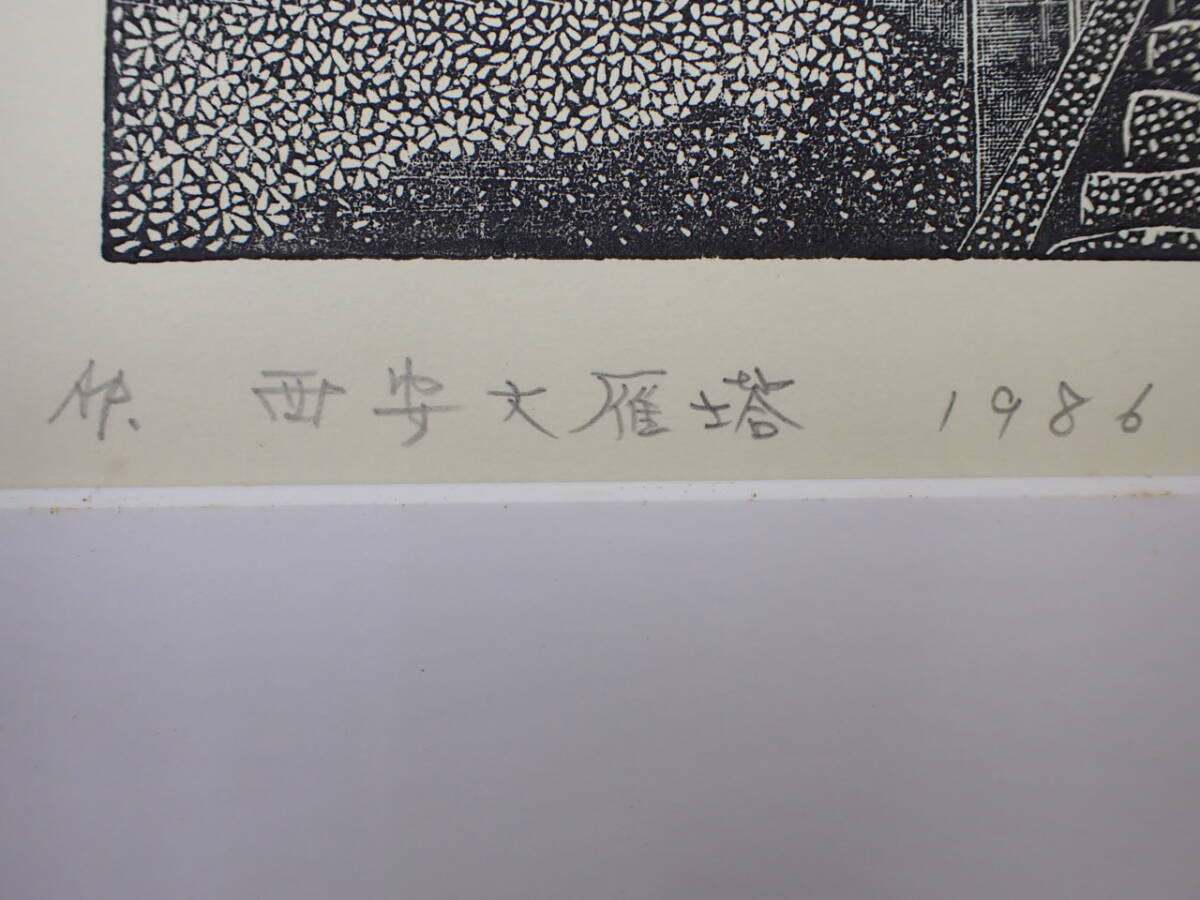 西安大雁塔 1986